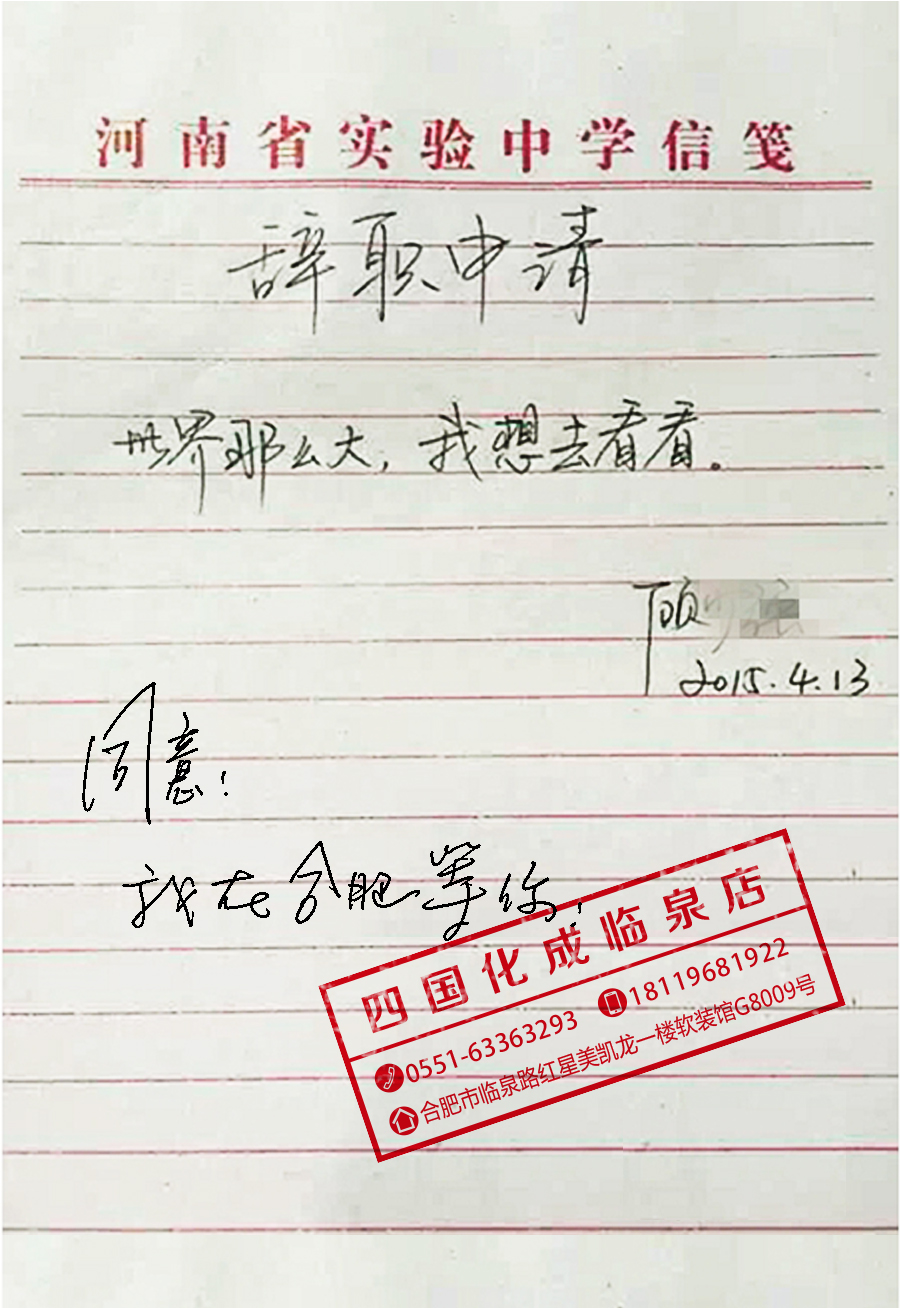 河南省实验中学信笺
辞职申请
世界那么大，我想去看看。
顾
2015.4.13
同意！
我在合肥等你！
四国化成临泉店
0551-63363293 18119681922
合肥市临泉路红星美凯龙一楼软装馆G8009号